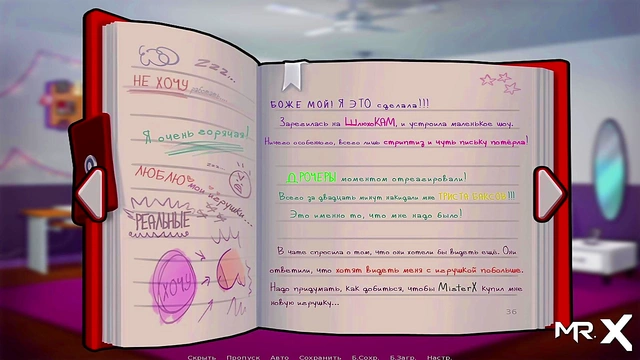 zzz...
НЕ ХОЧУ работать...
Я очень горячая!
ЛЮБЛЮ мои игрушки...
РЕАЛЬНЫЕ
ХОЧУ
БОЖЕ МОЙ! Я ЭТО сделала!!!
Зарегилась на ШлюхоКАМ, и устроила маленькое шоу.
Ничего особенного, всего лишь стриптиз и чуть письку потёрла!
ДРОЧЕРЫ моментом отреагировали!
Всего за двадцать минут накидали мне ТРИСТА БАКСОВ!!!
Это именно то, что мне надо было!
В чате спросила о том, что они хотели бы видеть ещё. Они
ответили, что хотят видеть меня с игрушкой побольше.
Надо придумать, как добиться, чтобы MisterX купил мне
новую игрушку...
36
MR.X
Скрыть Пропуск Авто Сохранить Б.Сохр. Б.Загр. Настр.